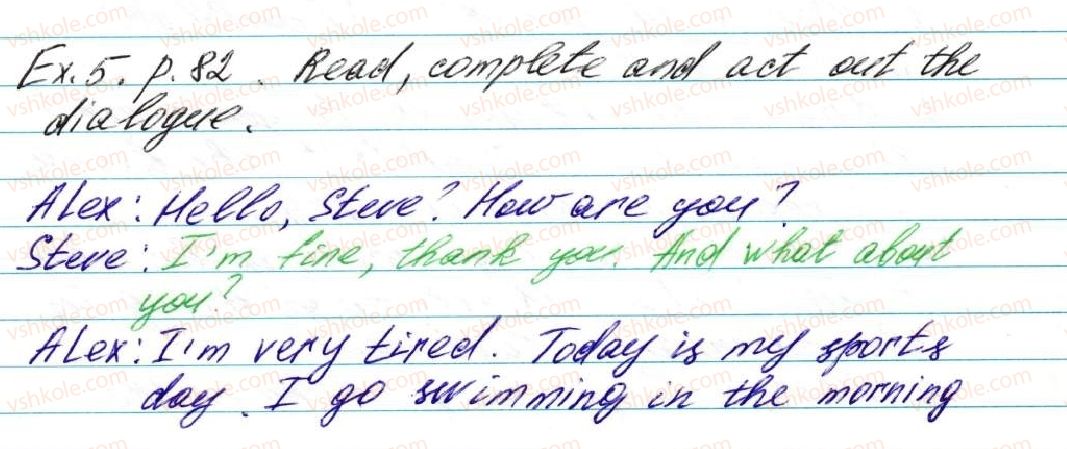 Ex. 5. p. 82. Read, complete and act out the
dialogue.
Alex: Hello, Steve? How are you?
Steve: I'm fine, thank you. And what about
you?
Alex: I'm very tired. Today is my sports
day. I go swimming in the morning